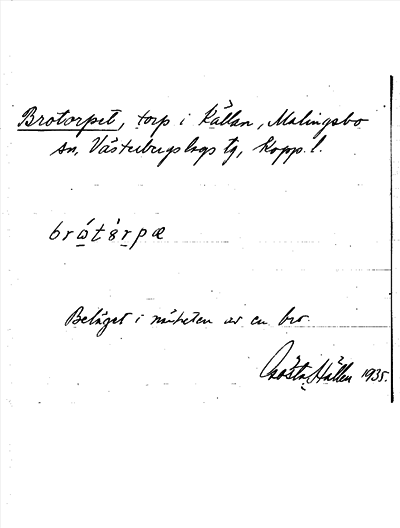 Brotorpet, torp i Källan, Malingsbo
sn, Västerbergslags tg, Kopp. l.
brὼtòrpæ
Beläget i närheten av en bro.
Gösta Hállen 1935.